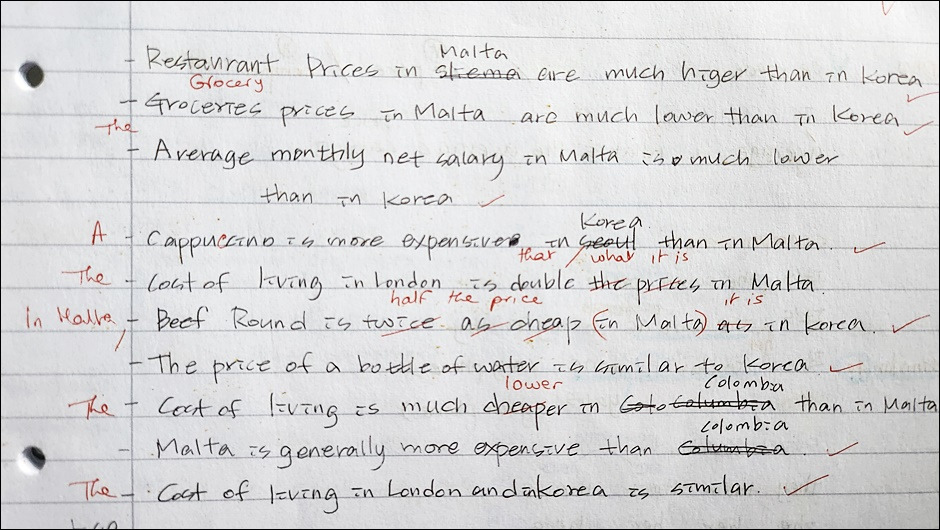 Malta
- Restaurant Prices in sliema are much higer than in Korea
Grocery
- Groceries prices in Malta are much lower than in Korea
The
- Average monthly net salary in Malta is much lower
than in Korea
Korea
A - Cappuccino is more expensive in seoul than in Malta.
that / what it is
The - Cost of living in London is double the prices in Malta.
half the price it is
In Malta, - Beef Round is twice as cheap (in Malta) as in Korea.
- The price of a bottle of water is similar to Korea
lower Colombia
The - Cost of living is much cheaper in Columbia than in Malta
Colombia
- Malta is generally more expensive than Columbia.
The - Cost of living in London and in Korea is similar.